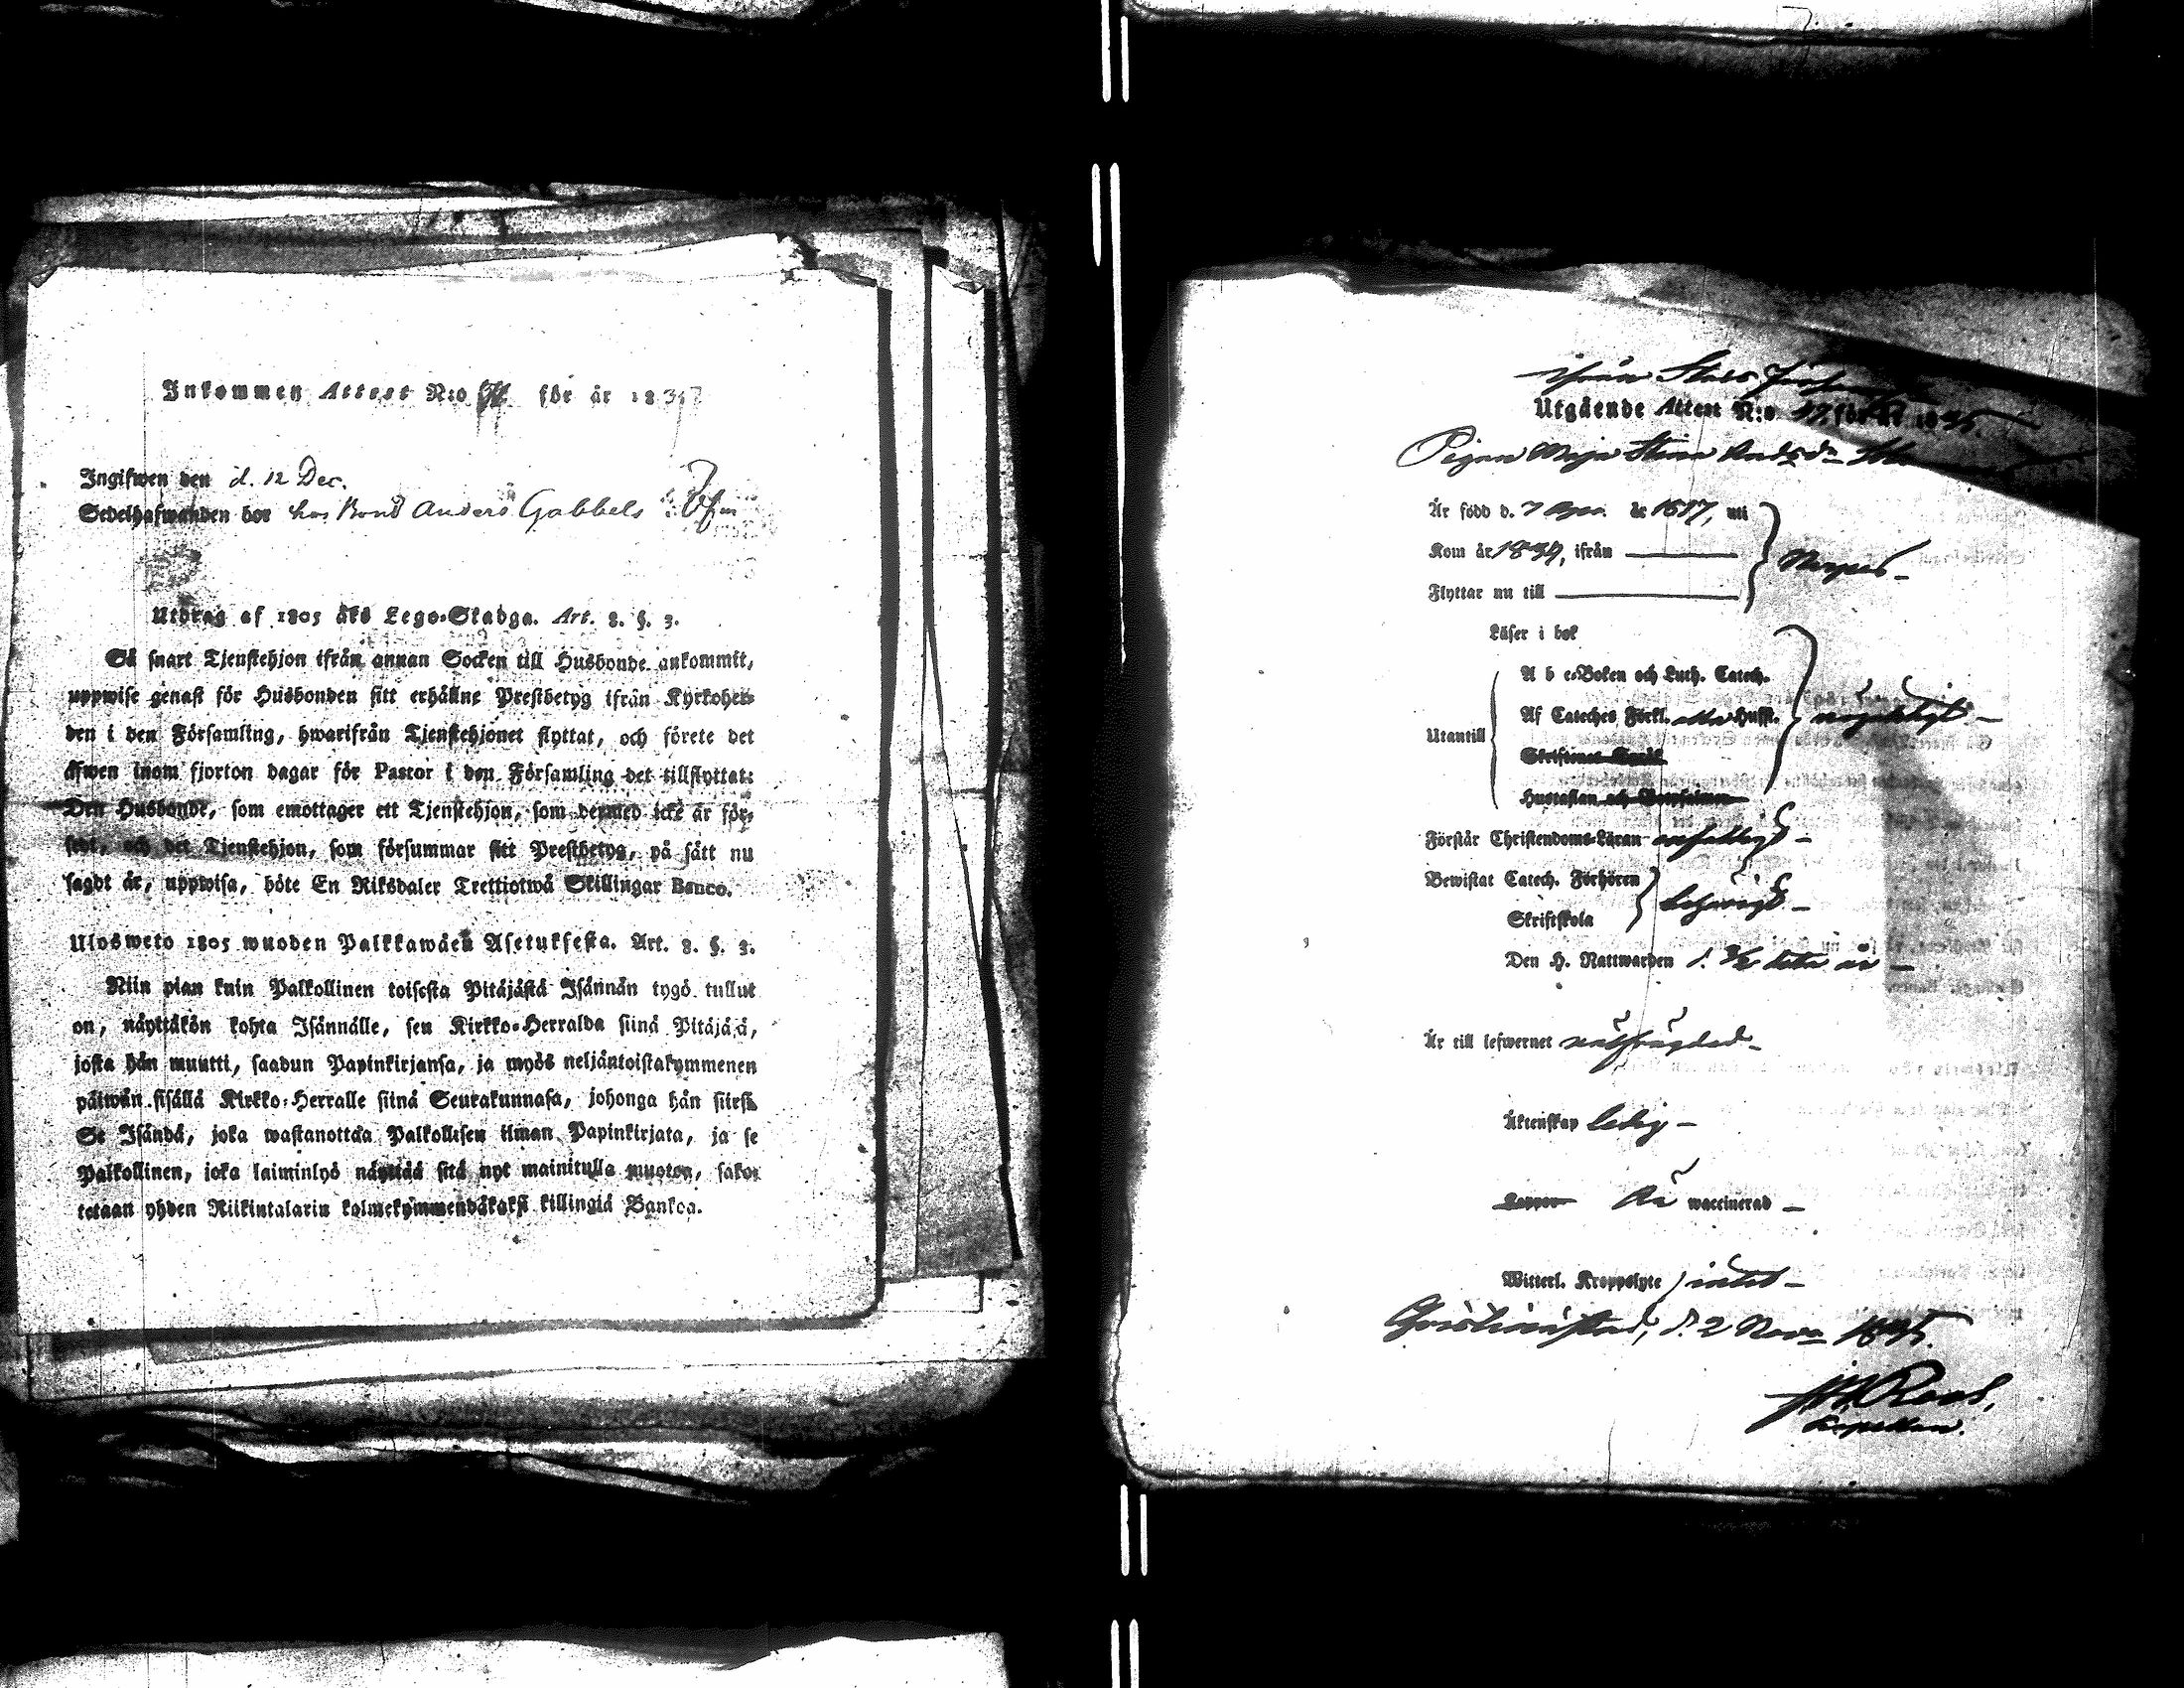 Inkommen Attest N:o för år 183
Ingifwen den d. 12 Dec.
Sedelhafwanden bor hos Bond Anders Gabbels
Utdrag af 1805 års Lego-Stadga. Art. 8. §. 3.
Så snart Tjenstehjon ifrån annan Socken till Husbonde ankommit,
uppwise genast för Husbonden sitt erhållne Prestbetyg ifrån Kyrkoher-
den i den Församling, hwarifrån Tjenstehjonet flyttat, och förete det
äfwen inom fjorton dagar för Pastor i den Församling det tillflyttat:
Den Husbonde, som emottager ett Tjenstehjon, som dermed icke är för-
sedt, och det Tjenstehjon, som försummar sitt Prestbetyg, på sätt nu
sagdt är, uppwisa, böte En Riksdaler Trettiotwå Skillingar Banco.
Ulosweto 1805 wuoden Palkkawäen Asetuksesta. Art. 8. §. 3.
Niin pian kuin Palkollinen toisesta Pitäjästä Isännän tygö tullut
on, näyttäkön kohta Isännälle, sen Kirkko-Herralda siinä Pitäjäsä,
josta hän muutti, saadun Papinkirjansa, ja myös neljäntoistakymmenen
päiwän sisällä Kirkko-Herralle siinä Seurakunnasa, johonga hän siirsi.
Se Isändä, joka wastanottaa Palkollisen ilman Papinkirjata, ja se
Palkollinen, joka laiminlyö näyttää sitä nyt mainitulla muoton, sako-
tetaan yhden Riikintalarin kolmekymmendäkaksi killingiä Bankoa.
ifrån Stads
Utgående Attest N:o 37 för år 1835.
Pigan Maja Stina Andsdr
Är född d. 7 år 1817, uti
Kom år 1834, ifrån
Närpes
Flyttar nu till
Läser i bok
A b c-Boken och Luth. Catech.
Af Cateches Förkl. Hufst.
nöjaktigt
Utantill
Skriftenes Språk
Hustaflan och
Förstår Christendoms-Läran enfaldigt
Bewistat Catech. Förhören
behörigt
Skriftskola
Den H. Nattwarden d. detta år
Är till lefwernet wälfrägdad
Äktenskap ledig
Koppor är waccinerad
Witterl. Kroppslyte intet
Christinestad, d. 2 Nov. 1835.
Roos,
Capellan.